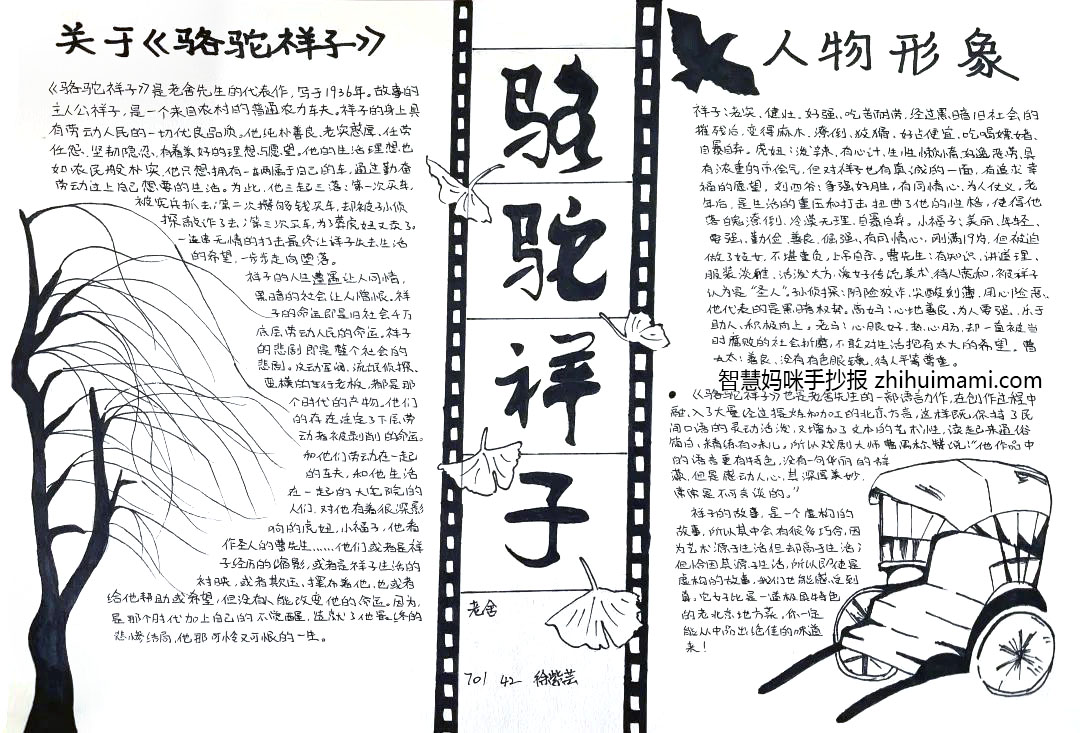 关于《骆驼祥子》
《骆驼祥子》是老舍先生的代表作，写于1936年。故事的
主人公祥子，是一个来自农村的普通农力车夫。祥子的身上具
有劳动人民的一切优良品质。他纯朴善良、老实憨厚、任劳
任怨、坚韧隐忍、有着美好的理想与愿望。他的生活理想也
如农民般朴实，他只想拥有一辆属于自己的车，通过勤奋
劳动过上自己想要的生活。为此，他三起三落：第一次买车，
被宪兵抓去；第二次攒够钱买车，却被孙侦
探敲诈了去；第三次买车，为了葬虎妞又卖了。
一连串无情的打击最终让祥子失去生活
的希望，一步步走向堕落。
祥子的人生遭遇让人同情，
黑暗的社会让人憎恨。祥
子的命运即是旧社会千万
底层劳动人民的命运，祥子
的悲剧即是整个社会的
悲剧。反动军阀、流氓侦探、
蛮横的车行老板，都是那
个时代的产物。他们
的存在注定了下层劳
动者被剥削的命运。
和他们劳动在一起
的车夫，和他生活
在一起的大宅院的
人们，对他有着很深影
响的虎妞、小福子，他看
作圣人的曹先生……他们或者是祥
子经历的缩影，或者是祥子生活的
衬映，或者欺压、摆布着他，也或者
给他帮助或希望，但没有人能改变他的命运。因为，
是那个时代加上自己的不觉醒，造就了他最终的
悲惨结局，他那可怜又可恨的一生。
骆
驼
祥
子
老舍
701 42 徐紫芸
人物形象
祥子：老实、健壮、好强、吃苦耐劳，经过黑暗旧社会的
摧残后，变得麻木、潦倒、狡猾、好占便宜、吃喝嫖赌、
自暴自弃。虎妞：泼辣、有心计、生性懒惰、好逸恶劳、具
有浓重的市侩气，但对祥子也有真诚的一面，有追求幸
福的愿望。刘四爷：争强好胜，有同情心，为人仗义，老
年后，是生活的重压和打击扭曲了他的性格，使得他
落魄潦倒、冷漠无理、自暴自弃。小福子：美丽、年轻、
要强、勤俭、善良、倔强、有同情心，刚满19岁，但被迫
做了妓女，不堪重负，上吊自尽。曹先生：有知识、讲道理、
服装淡雅、活泼大方、爱好传统美术、待人宽和，被祥子
认为是“圣人”。孙侦探：阴险狡诈、尖酸刻薄、用心险恶、
他代表的是黑暗权势。高妈：心地善良、为人要强、乐于
助人、积极向上。老马：心眼好，热心肠，却一直被当
时腐败的社会折磨，不敢对生活抱有太大的希望。曹
太太：善良、没有有色眼镜、待人平等尊重。
智慧妈咪手抄报 zhihuimami.com
《骆驼祥子》也是老舍先生的一部语言力作，在创作过程中
融入了大量经过提炼和加工的北京方言，这样既保持了民
间口语的灵动活泼，又增加了文本的艺术性，读起来通俗
简白，精练有味儿。所以戏剧大师曹禺称赞说：“他作品中
的语言更有特色，没有一句华丽的辞
藻，但是感动人心，其深厚美妙，
常常是不可言谈的。”
祥子的故事，是一个虚构的
故事，所以其中会有很多巧合，因
为艺术源于生活但却高于生活；
但恰因其源于生活，所以即使是
虚构的故事，我们也能感受到
真，它好比是一道极具特色
的老北京地方菜，你一定
能从中品出绝佳的味道
来！